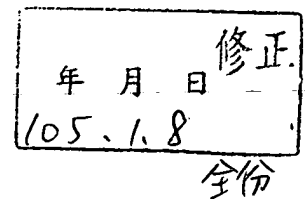 修正
年 月 日
105.1.8
全份